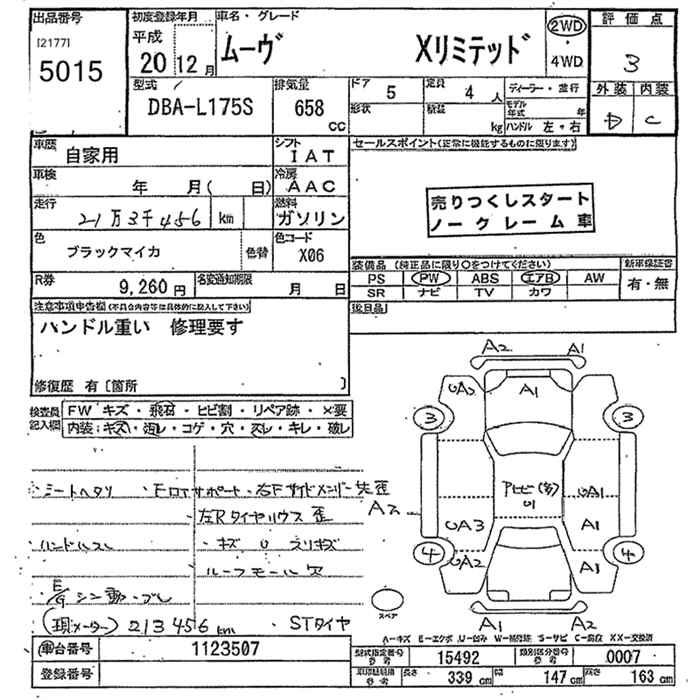 出品番号 初度登録年月 車名・グレード 評価点
[2177] 平成 2WD
5015 20 12月 ムーヴ Xリミテッド ・ 3
4WD
型式 排気量 ドア 5 定員 4人 ディーラー・並行 外装 内装
DBA-L175S 658 CC 形状 積載 kg モデル年式 年 D C
ハンドル 左・右
車歴 自家用 シフト IAT セールスポイント(正常に機能するものに限ります)
車検 年 月( 日) 冷房 AAC
走行 21万3千456 km 燃料 ガソリン 売りつくしスタート
ノークレーム車
色 ブラックマイカ 色替 色コード X06
装備品 (純正品に限り○をつけてください) 新車保証書
R券 9,260円 名変通知期限 月 日 PS PW ABS エアB AW 有・無
SR ナビ TV カワ
注意事項申告欄(不具合内容等は具体的に記入して下さい) 後日品
ハンドル重い 修理要す
修復歴 有〔箇所 〕
検査員記入欄 FW キズ・飛石・ヒビ割・リペア跡・×要
内装:キズ・汚レ・コゲ・穴・スレ・キレ・破レ
A2 A1
UA2 A1
3 3
シートヘタリ FロアサポートX・右Fサイドメンバー先歪
A2 アトヒ(多) UA1
U1
左Rタイヤハウス歪 UA3 A1
ハンドルスレ ・キズ U スリキズ 4 4
ルーフモール欠 UA2 A1
E/G シン動・ブレ
A1 A2
スペア
(現メーター)213456km ・STタイヤ
A-キズ E-エクボ U-凹み W-補修跡 S-サビ C-腐蝕 XX-交換済
車台番号 1123507 型式指定番号 参考 15492 類別区分番号 参考 0007
登録番号 車両諸規格 参考 長さ 339cm 幅 147cm 高さ 163cm